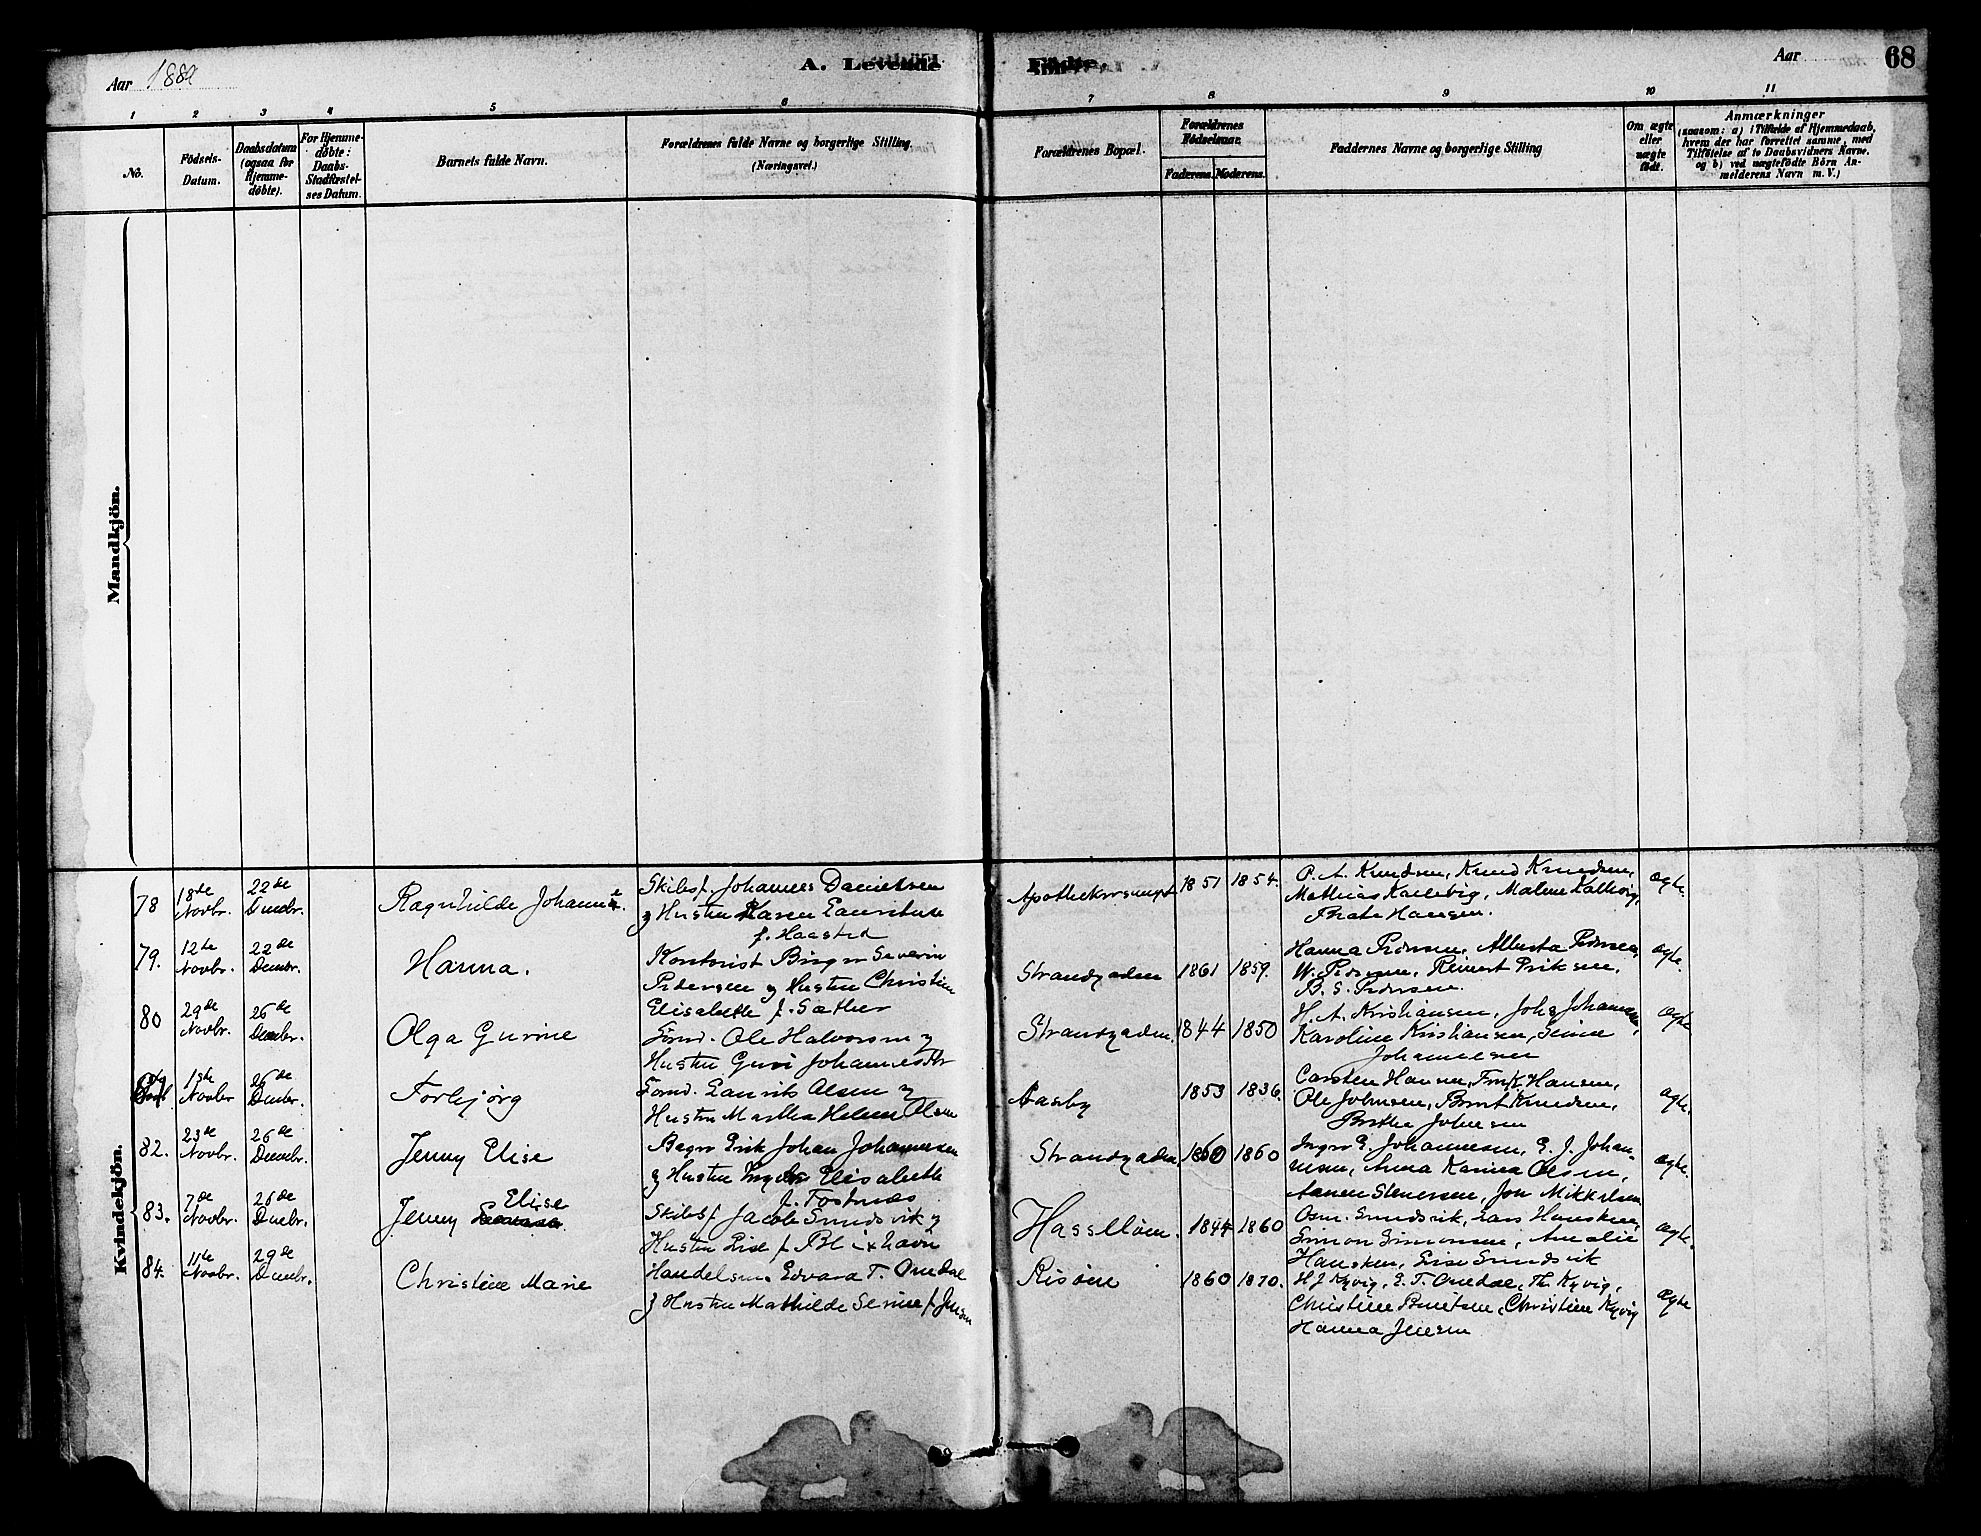 Aar 1889
A. Levende Fødte.
Aar
68
1 2 3 4 5 6 7 8 9 10 11
No.
Födsels-Datum.
Daabsdatum (ogsaa for Hjemme-döbte).
For Hjemme-döbte: Daabs-Stadfæstel-ses Datum.
Barnets fulde Navn.
Forældrenes fulde Navne og borgerlige Stilling.
(Næringsvei.)
Forældrenes Bopæl.
Forældrenes Födselsaar.
Faderens. Moderens.
Faddernes Navne og borgerlige Stilling
Om ægte eller uægte födt.
Anmærkninger
(saasom: a) i Tilfælde af Hjemmedaab,
hvem der har forrettet samme, med
Tilföielse af to Daabsvidners Navne,
og b) ved uægtefödte Börn An-
melderens Navn m. V.)
Mandkjön.
Kvindekjön.
78 18de Novbr. 22de Decmbr. Ragnhilde Johanne.
Skibsf. Johannes Danielsen
& Hustru Karen Lauritine
f. Haasted
1851 1854.
P. A. Knudsen, Knud Knudsen,
Mathias Kallevig, Malene Kallevig,
Hansen.
ægte.
79. 12te Novbr. 22de Decmbr. Hanna.
Kontorist Birger Severin
Pedersen & Hustru Christine
Elisabeth f. Sæther
Strandgaden 1861 1859.
Hanna Pedersen, Alberta Pedersen,
W. Pedersen, Eriksen,
B. S. Pedersen.
ægte.
80 29de Novbr. 26de Decmbr. Olga Gurine
Ole Halvorsen &
Hustru Guri Johannesdtr
Strandgaden. 1844 1850
H. A. Kristiansen, Johs Johannesen,
Karoline Kristiansen,
Johannesen
ægte
13de Novbr 26de Decmbr. Torbjörg
Laurits Olsen &
Hustru Martha Helene Olsen
Aasby 1853 1836.
Carsten Hansen, Hansen,
Ole Johnsen, Berent Knudsen,
Berthe Johnsen
ægte.
82. 23de Novbr. 26de Decmbr. Jenny Elise
Bager Erik Johan Johannesen
& Hustru Elisabeth
f. Tostnæs
Strandgaden 1860 1860
E. Johannesen, E. J. Johan-
nesen, Anna Karina Olsen,
Stenersen, Jon Mikkelsen
ægte.
83. 7de Novbr. 26de Decbr. Jenny Elise
Skibsf. Jacob Sundsvik &
Hustru Lise f. Blixhavn
Hasseløen. 1844 1860
Osm. Sundsvik, Lars Hansken,
Simon Simonsen, Amalie
Hansken, Lise Sundsvik
ægte.
84. 11te Novbr. 29de Decmbr. Christine Marie
Handelsm. Edvard T. Omdal
& Hustru Mathilde Serine f. Jensen
Risöen 1860 1870.
H J Kyvig, E. T. Omdal, Th. Kyvig,
Christine Berntsen, Christine Kyvig
Hanna Jensen
Ægte